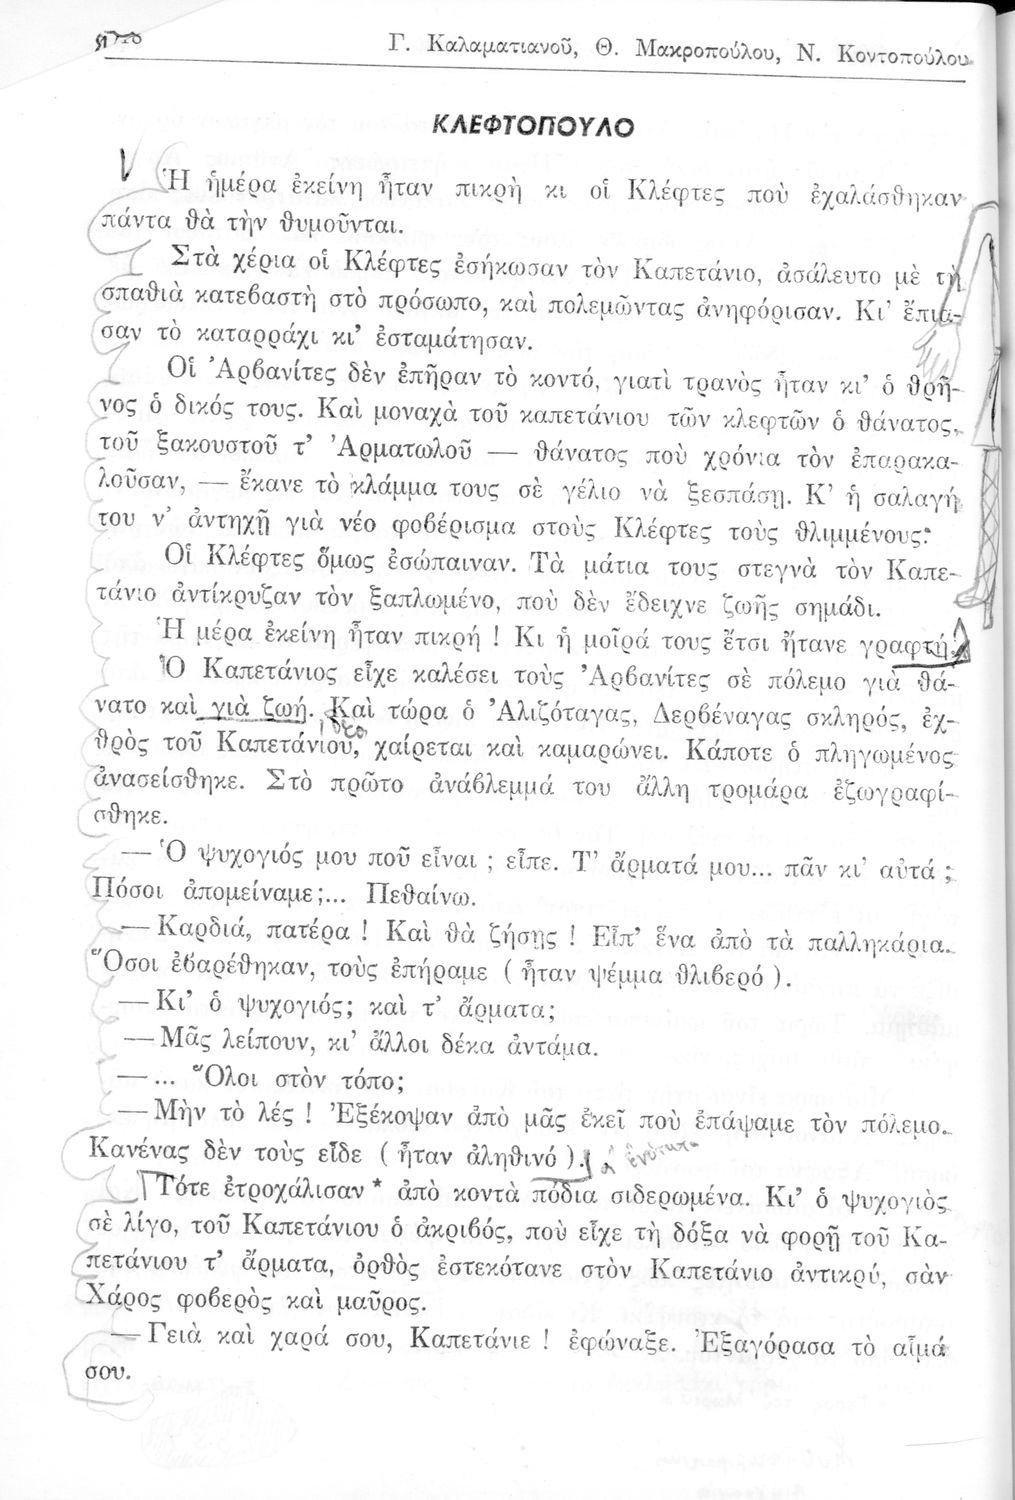 Γ. Καλαματιανοῦ, Θ. Μακροπούλου, Ν. Κοντοπούλου
ΚΛΕΦΤΟΠΟΥΛΟ
Ἡ ἡμέρα ἐκείνη ἦταν πικρὴ κι οἱ Κλέφτες ποὺ ἐχαλάσθηκαν
πάντα θὰ τὴν θυμοῦνται.
Στὰ χέρια οἱ Κλέφτες ἐσήκωσαν τὸν Καπετάνιο, ἀσάλευτο μὲ τὴ
σπαθιὰ κατεβαστὴ στὸ πρόσωπο, καὶ πολεμῶντας ἀνηφόρισαν. Κι' ἔπια-
σαν τὸ καταρράχι κι' ἐσταμάτησαν.
Οἱ Ἀρβανίτες δὲν ἐπῆραν τὸ κοντό, γιατὶ τρανὸς ἦταν κι' ὁ θρῆ-
νος ὁ δικός τους. Καὶ μοναχὰ τοῦ καπετάνιου τῶν κλεφτῶν ὁ θάνατος,
τοῦ ξακουστοῦ τ' Ἀρματωλοῦ — θάνατος ποὺ χρόνια τὸν ἐπαρακα-
λοῦσαν, — ἔκανε τὸ κλάμμα τους σὲ γέλιο νὰ ξεσπάση. Κ' ἡ σαλαγή
του ν' ἀντηχῇ γιὰ νέο φοβέρισμα στοὺς Κλέφτες τοὺς θλιμμένους.
Οἱ Κλέφτες ὅμως ἐσώπαιναν. Τὰ μάτια τους στεγνὰ τὸν Καπε-
τάνιο ἀντίκρυζαν τὸν ξαπλωμένο, ποὺ δὲν ἔδειχνε ζωῆς σημάδι.
Ἡ μέρα ἐκείνη ἦταν πικρή ! Κι ἡ μοῖρά τους ἔτσι ἤτανε γραφτή.
Ὁ Καπετάνιος εἶχε καλέσει τοὺς Ἀρβανίτες σὲ πόλεμο γιὰ θά-
νατο καὶ γιὰ ζωή. Καὶ τώρα ὁ Ἀλιζόταγας, Δερβέναγας σκληρός, ἐχ-
θρὸς τοῦ Καπετάνιου, χαίρεται καὶ καμαρώνει. Κάποτε ὁ πληγωμένος
ἀνασείσθηκε. Στὸ πρῶτο ἀνάβλεμμά του ἄλλη τρομάρα ἐζωγραφί-
σθηκε.
— Ὁ ψυχογιός μου ποῦ εἶναι ; εἶπε. Τ' ἄρματά μου... πᾶν κι' αὐτά ;
Πόσοι ἀπομείναμε;... Πεθαίνω.
— Καρδιά, πατέρα ! Καὶ θὰ ζήσῃς ! Εἶπ' ἕνα ἀπὸ τὰ παλληκάρια.
Ὅσοι ἐβαρέθηκαν, τοὺς ἐπήραμε ( ἦταν ψέμμα θλιβερό ).
— Κι' ὁ ψυχογιός; καὶ τ' ἄρματα;
— Μᾶς λείπουν, κι' ἄλλοι δέκα ἀντάμα.
— ... Ὅλοι στὸν τόπο;
— Μὴν τὸ λές ! Ἐξέκοψαν ἀπὸ μᾶς ἐκεῖ ποὺ ἐπάψαμε τὸν πόλεμο.
Κανένας δὲν τοὺς εἶδε ( ἦταν ἀληθινό ).
Τότε ἐτροχάλισαν * ἀπὸ κοντὰ πόδια σιδερωμένα. Κι' ὁ ψυχογιὸς
σὲ λίγο, τοῦ Καπετάνιου ὁ ἀκριβός, ποὺ εἶχε τὴ δόξα νὰ φορῇ τοῦ Κα-
πετάνιου τ' ἄρματα, ὀρθὸς ἐστεκότανε στὸν Καπετάνιο ἀντικρύ, σὰν
Χάρος φοβερὸς καὶ μαῦρος.
— Γειὰ καὶ χαρά σου, Καπετάνιε ! ἐφώναξε. Ἐξαγόρασα τὸ αἷμά
σου.